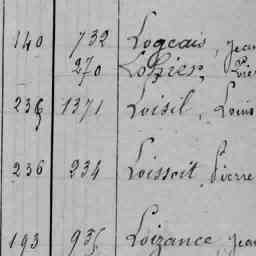 140 732 Logeais, Jean
270 Lohier, Pier
236 1371 Loisil, Louis
236 234 Loissoit, Pierre
193 935 Loizance, Jean